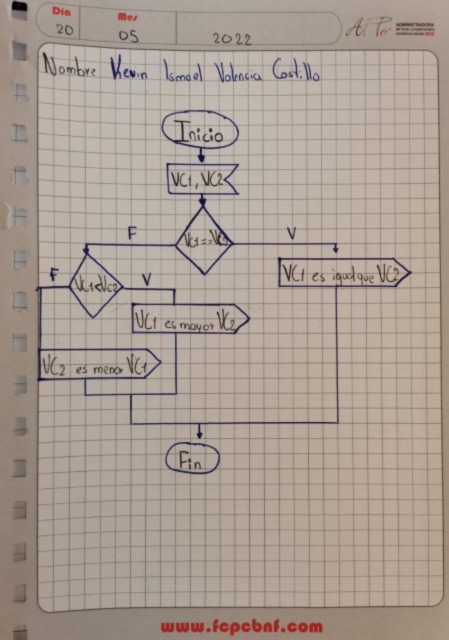 Dia
Mes
20
05
2022
Nombre Kevin Ismael Valencia Castillo
Inicio
VC1, VC2
VC1==VC2
F
V
VC1 es igual que VC2
VC1<VC2
F
V
VC1 es mayor VC2
VC2 es menor VC1
Fin
www.fcpcbnf.com